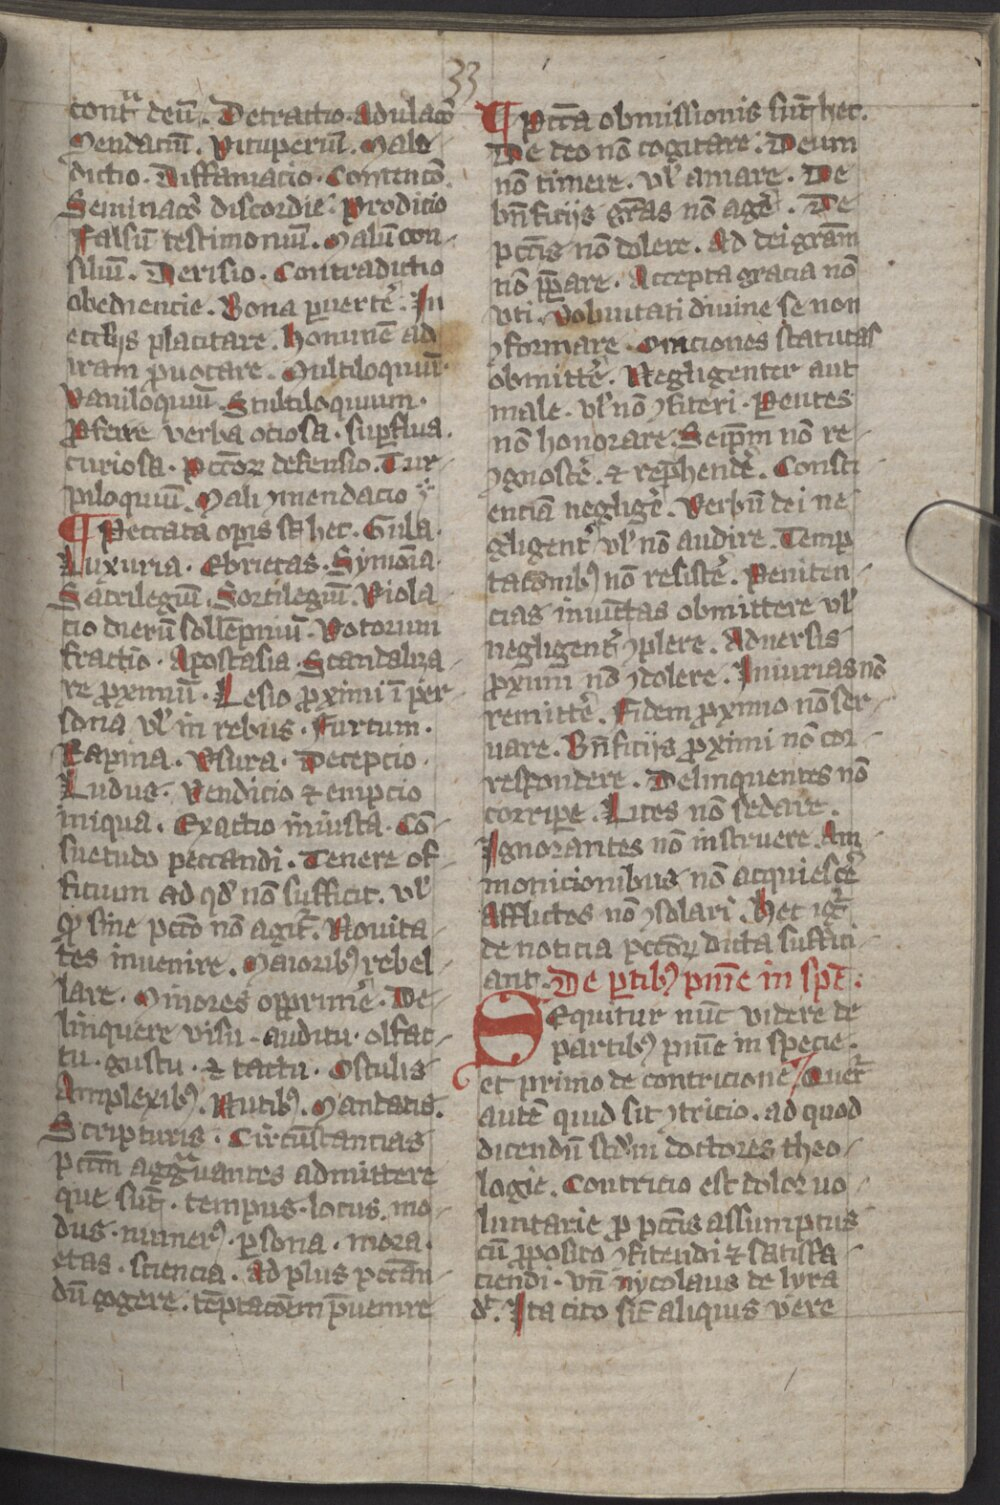 33
contra deū. Detractio. Adulacō
Mendaciū. Vituperiū. Male
dictio. Diffamacio. Contencō.
Seminacō discordie. Prodicio
Falsū testimoniū. Malū con
siliū. Derisio. Contradictio
obediencie. Bona puertē. In
ecclijs placitare. Hominē ad
iram prouocare. Multiloquiū.
Vaniloquiū. Stultiloquium.
Proferre verba ociosa. supflua.
curiosa. Pctōꝝ defensio. Tur
piloquiū. Mali ꝯmendacio
¶ Peccata opis st̄ hec. Gula.
Luxuria. Ebrietas. Symonia.
Sacrilegiū. Sortilegiū. Viola
cio dierū sollēpniū. Votorum
fractio. Apostasia. Scandaliza
re proximū. Lesio proximi ī per
sona vl̓ in rebus. Furtum.
Rapina. Vsura. Decepcio.
Ludus. Vendicio ⁊ empcio
iniqua. Exactio iniusta. Cō
suetudo peccandi. Tenere of
ficium ad qd̓ nō sufficit. vl̓
qd̓ sine pctō nō agit᷑. Nouita
tes inuenire. Maiorib᷒ rebel
lare. Minores opprimē. De
linquere visu. auditu. olfac
tu. gustu. ⁊ tactu. Osculis
Amplexib᷒. Nutib᷒. Mandatis.
Scripturis. Circūstancias
pctm̄ aggrauantes admittere
que sūt. tempus. locus. mo
dus. numer᷒. psona. mora.
etas. sciencia. Ad plus pctān
dū cogere. tēptacōem p̄uenire
¶ Pctā obmissionis sūt hec.
De deo nō cogitare. Deum
nō timere. vl̓ amare. De
bn̄ficijs grās nō agē. De
pctīs nō dolere. Ad dei grām
nō p̄pare. Accepta gracia nō
vti. Voluntati diuine se non
ꝯformare. Oraciones statutas
obmittē. Negligenter aut
male. vl̓ nō ꝯfiteri. Pentes
nō honorare. Seip̄m nō re
ꝯgnoscē. ⁊ rep̄hendē. Consci
enciā negligē. Verbū dei ne
gligent᷑ vl̓ nō audire. Temp
tacōnib᷒ nō resistē. Peniten
cias iniūctas obmittere vl̓
negligent᷑ ꝯplere. Aduersis
proximi nō ꝯdolere. Iniurias nō
remittē. Fidem proximo nō ser
uare. Bn̄ficijs proximi nō cor
respondere. Delinquentes nō
corripe. Lites nō sedare.
Ignorantes nō instruere. Am
monicionibus nō acquiescē
Afflictos nō ꝯsolari. Hec ig᷑
de noticia pctōꝝ dicta suffici
ant. De ptib᷒ pnīe in spē:
SEquitur nūc videre de
partib᷒ pnīe in specie.
et primo de contricione / Querit᷑
autē quid sit ꝯtricio. ad quod
dicendū scd̓m doctores theo
logie. Contricio est dolor uo
luntarie p pctīs assumptus
cū proposito ꝯfitendi ⁊ satisfa
ciendi. Vn̄ nycolaus de lyra
d̓t. Ita cito sit aliquis vere